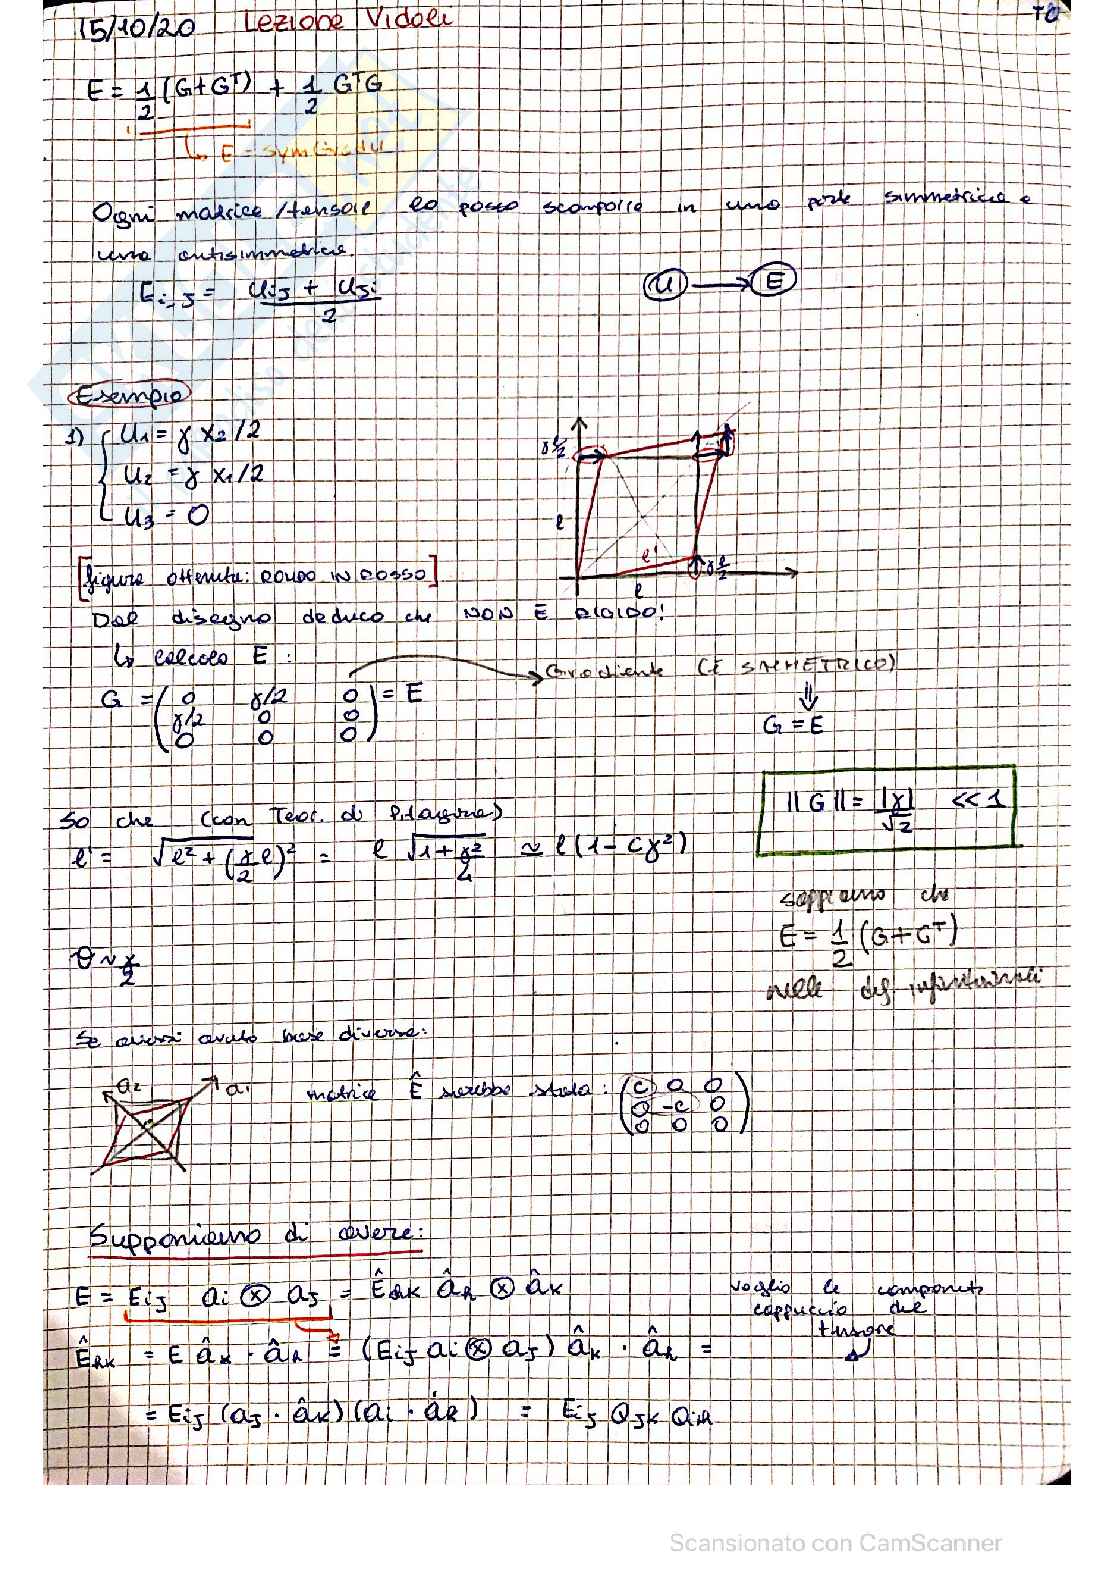 15/10/20 Lezione Vidoli
E = 1/2 (G+Gᵀ) + 1/2 GᵀG
↳ E = sym
Ogni matrice/tensore lo posso scomporre in una parte simmetrica e
una antisimmetrica.
Ei,j = (ui,j + uj,i)/2
U → E
Esempio
1) { u1 = γ x2/2
u2 = γ x1/2
u3 = 0
γ l/2
l
l'
γ l/2
l
[figura ottenuta: ROMBO IN ROSSO]
Dal disegno deduco che NON È RIGIDO!
↳ calcolo E :
Gradiente (È SIMMETRICO)
⇓
G = E
G = (0 γ/2 0) = E
(γ/2 0 0)
(0 0 0)
||G|| = |γ|/√2 << 1
So che (con Teor. di Pitagora)
l' = √(l² + (γ/2 l)²) = l √(1 + γ²/4) ≃ l(1 - cγ²)
sappiamo che
E = 1/2 (G+Gᵀ)
nelle def. infinitesimali
θ ~ γ/2
Se avessi avuto base diversa:
a2 a1
matrice Ê sarebbe stata: (c 0 0)
(0 -c 0)
(0 0 0)
Supponiamo di avere:
E = Eij ai ⊗ aj = Êhk âh ⊗ âk
voglio le componenti
cappuccio del
tensore
Êhk = E âk · âh = (Eij ai ⊗ aj) âk · âh =
= Eij (aj · âk)(ai · âh) = Eij Qjk Qih
Scansionato con CamScanner